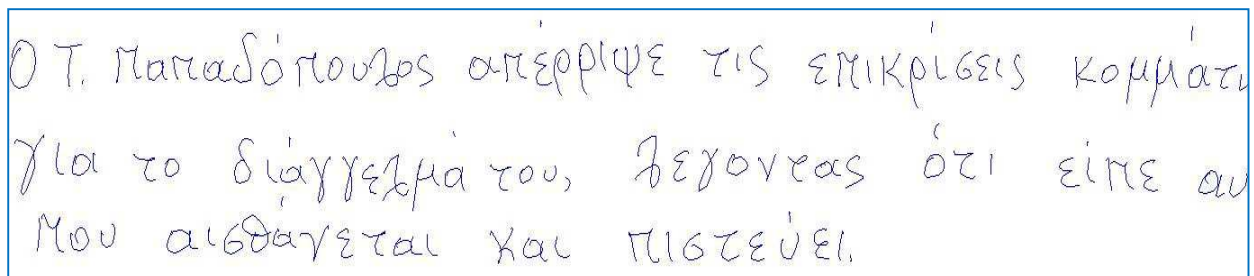 Ο Τ. Παπαδόπουλος απέρριψε τις επικρίσεις κομμάτω
για το διάγγελμά του, λεγοντας ότι είπε αυ
που αισθάνεται και πιστεύει.